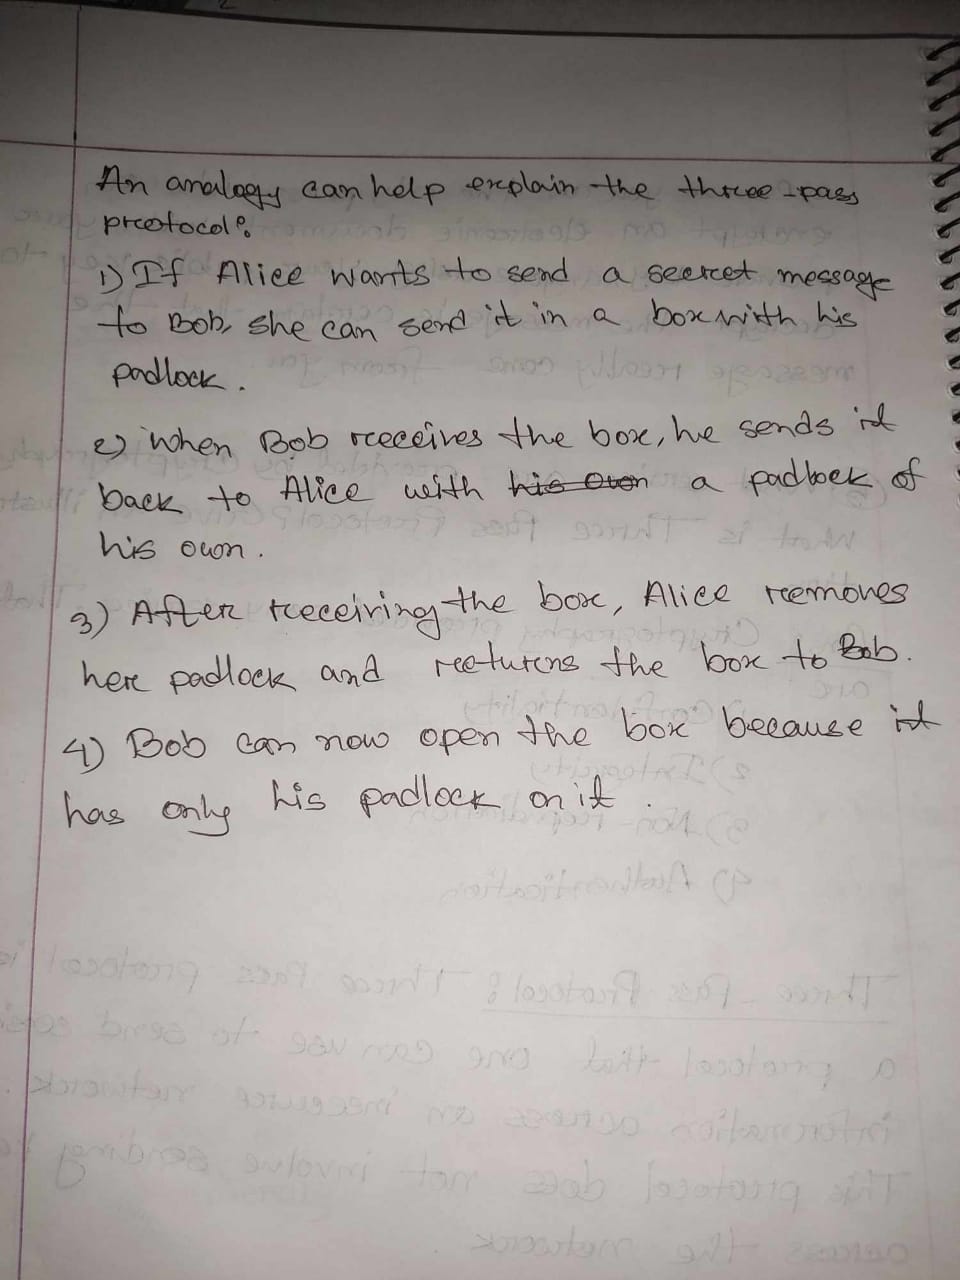 An analogy can help explain the three-pass
protocol:
1) If Alice wants to send a secret message
to Bob, she can send it in a box with his
padlock.
2) When Bob receives the box, he sends it
back to Alice with his own a padlock of
his own.
3) After receiving the box, Alice removes
her padlock and returns the box to Bob.
4) Bob can now open the box because it
has only his padlock on it.